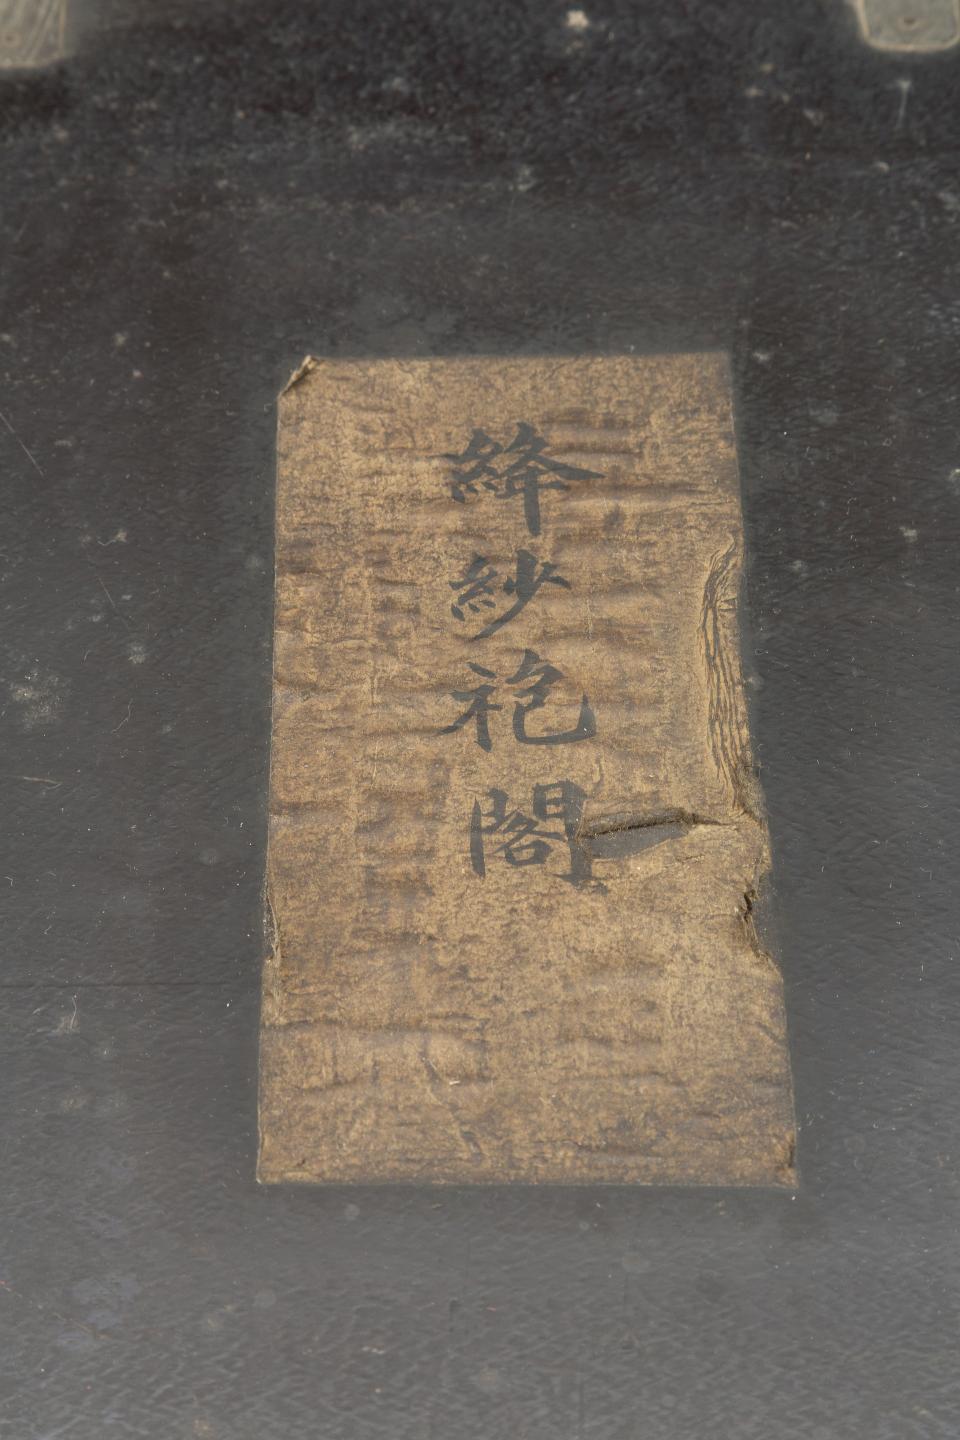 絳紗袍閣